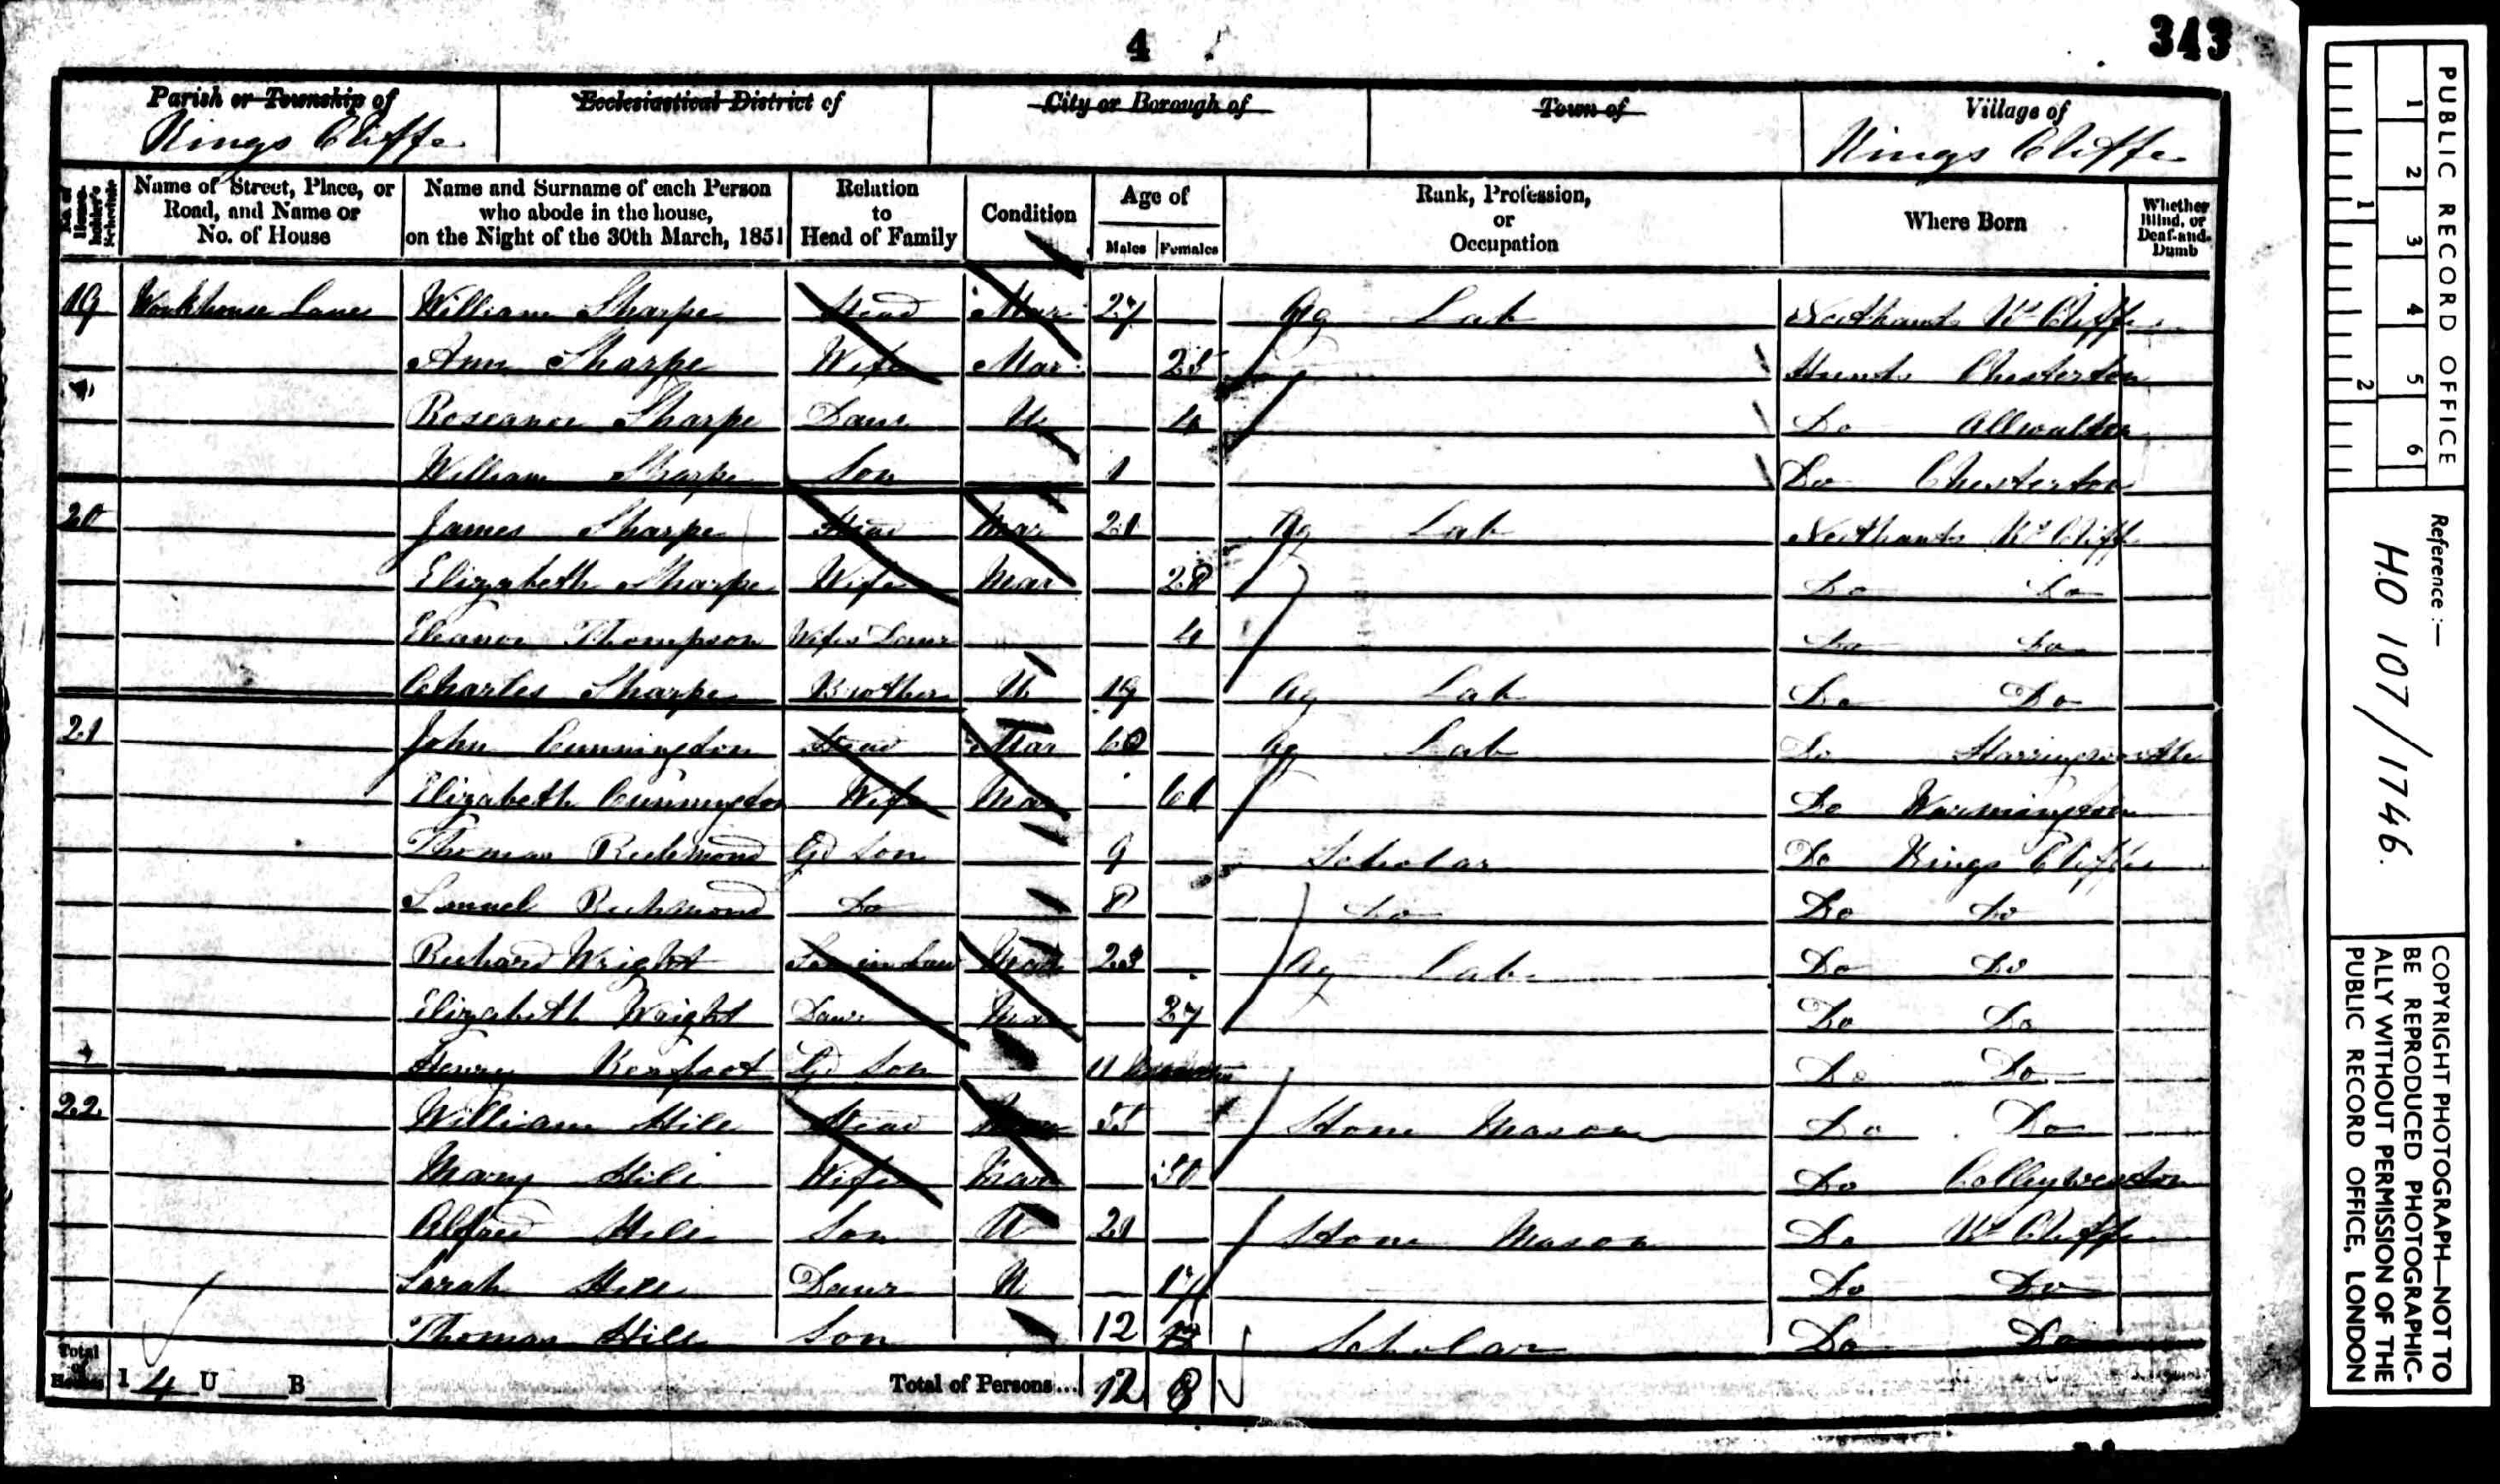 4
343
Parish or Township of
Kings Cliffe
Ecclesiastical District of
City or Borough of
Town of
Village of
Kings Cliffe
No. of House-holder's Schedule
Name of Street, Place, or Road, and Name or No. of House
Name and Surname of each Person who abode in the house, on the Night of the 30th March, 1851
Relation to Head of Family
Condition
Age of
Males
Females
Rank, Profession, or Occupation
Where Born
Whether Blind, or Deaf-and-Dumb
19 Workhouse Lane William Sharpe Head Mar 27 Ag Lab Northants Ks Cliffe
Ann Sharpe Wife Mar 25 Hunts Chesterton
Roseanoe Sharpe Daur U 4 Do Allwalton
William Sharpe Son 1 Do Chesterton
20 James Sharpe Head Mar 21 Ag Lab Northants Ks Cliffe
Elizabeth Sharpe Wife Mar 28 Do Do
Eleanor Thompson Wifes Daur 4 Do Do
Charles Sharpe Brother U 19 Ag Lab Do Do
21 John Cunnington Head Mar 60 Ag Lab Do Harringworthe
Elizabeth Cunnington Wife Mar 61 Do Warmington
Thomas Richmond Gd Son 9 Scholar Do Kings Cliffe
Samuel Richmond Do 8 Do Do Do
Richard Wright Son in Law Mar 23 Ag Lab Do Do
Elizabeth Wright Daur Mar 27 Do Do
Henry Kerfoot Gd Son 11 Months Do Do
22 William Hill Head Mar 55 Stone Mason Do Do
Mary Hill Wife Mar 50 Do Colleyweston
Alfred Hill Son U 21 Stone Mason Do Ks Cliffe
Sarah Hill Daur U 17 Do Do
Thomas Hill Son 12 Scholar Do Do
Total of Houses I 4 U B Total of Persons... 12 8
PUBLIC RECORD OFFICE
1 2 3 4 5 6
1 2
Reference :—
HO 107/1746.
COPYRIGHT PHOTOGRAPH—NOT TO
BE REPRODUCED PHOTOGRAPHIC-
ALLY WITHOUT PERMISSION OF THE
PUBLIC RECORD OFFICE, LONDON